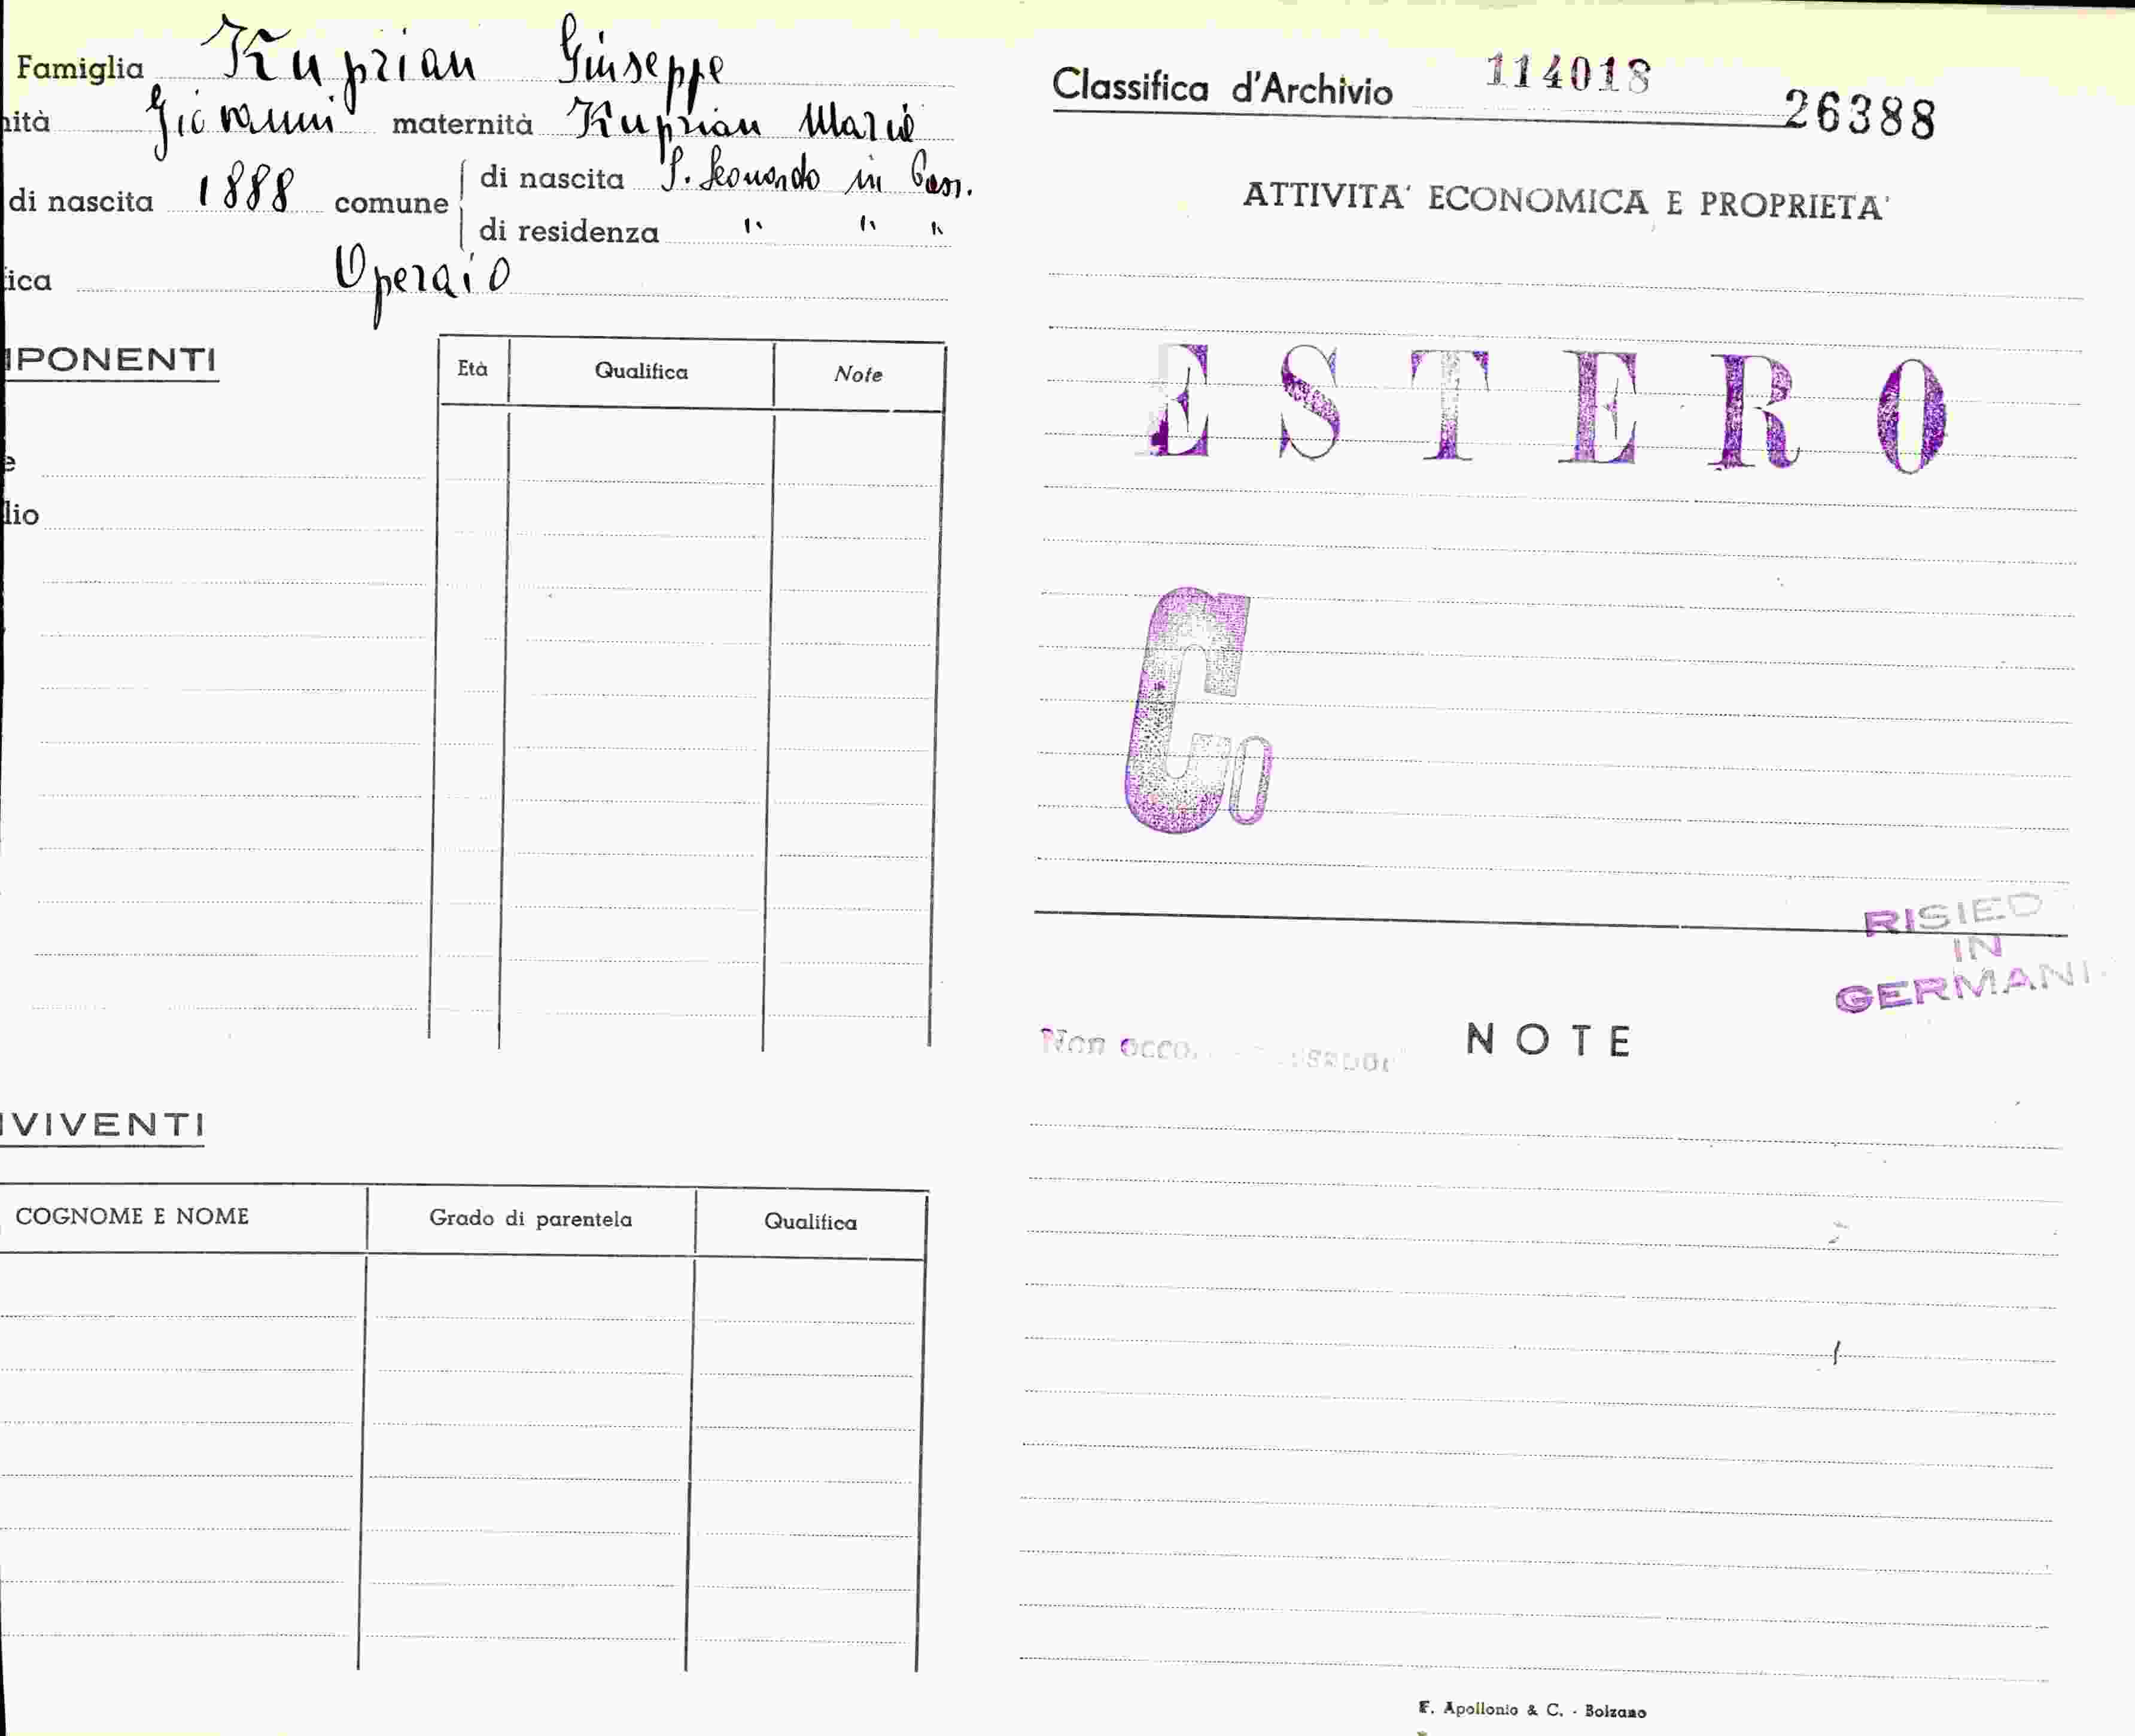 Famiglia Kuprian Giuseppe
nità Giovanni maternità Kuprian Maria
di nascita 1888 comune di nascita S. Leonardo in Pass.
di residenza " " "
ica Operaio
MPONENTI
Età Qualifica Note
e
lio
VIVENTI
COGNOME E NOME Grado di parentela Qualifica
Classifica d'Archivio 114018
26388
ATTIVITA' ECONOMICA E PROPRIETA'
ESTERO
Co
RISIED
IN
GERMANI
Non occo
NOTE
F. Apollonio & C. - Bolzano